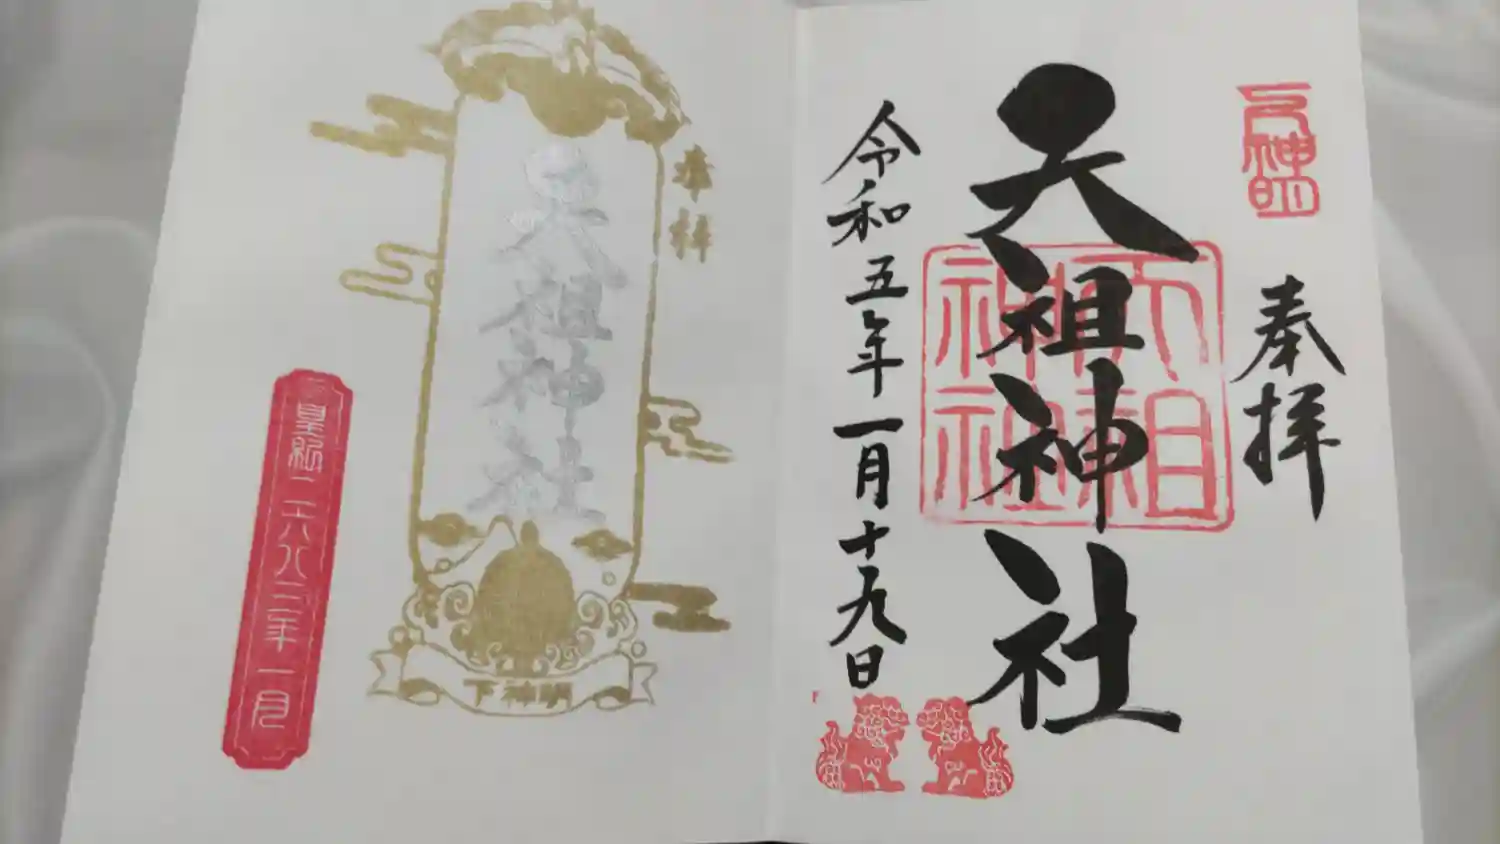 下神明
奉拝
天祖神社
天祖神社
令和五年一月十九日
奉拝
天祖神社
下神明
皇紀二六八三年一月